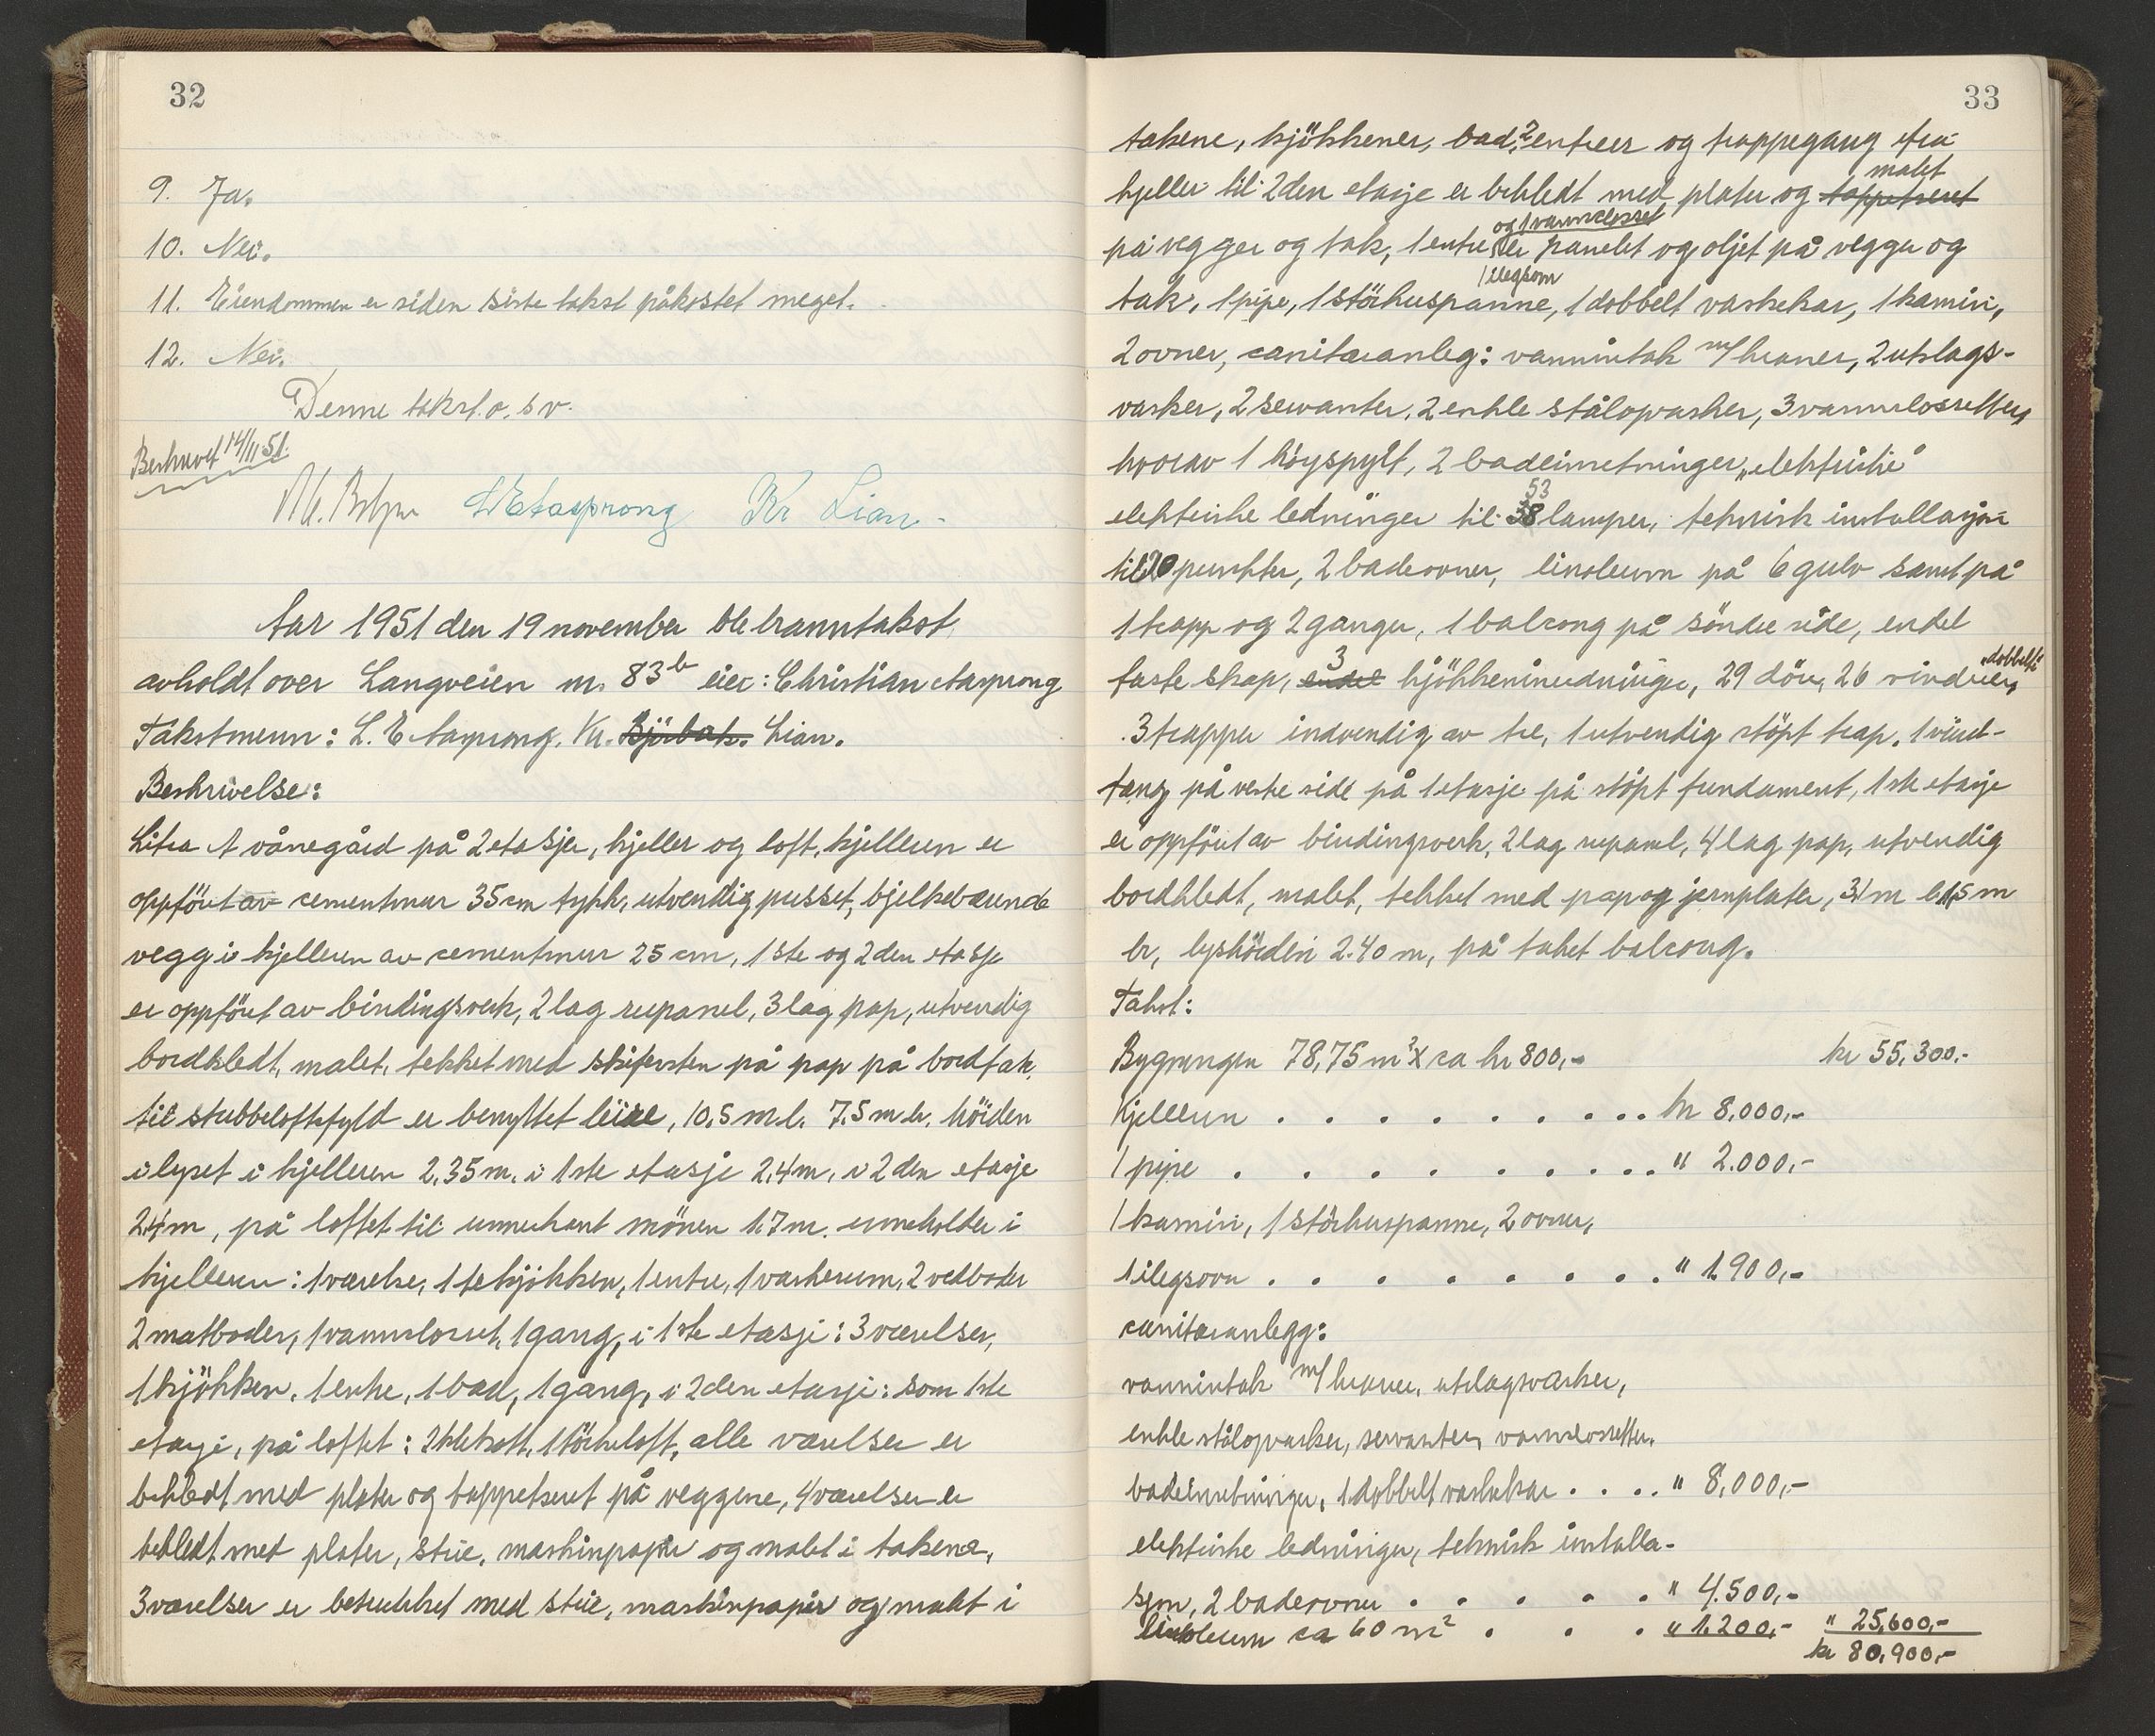 32
9. Ja.
10. Nei.
11. Eiendommen er siden siste takst påkostet meget.
12. Nei.
Denne takst o. s v.
Beskrevet 14/11 51.
Kr Lian.
Aar 1951 den 19 november ble branntakst
avholdt over Langveien nr. 83b eier: Christian Aasprong
Takstmenn: L. E Aasprong, Kr. Lian.
Beskrivelse:
Litra A vånegård på 2 etasjer, kjeller og loft, kjelleren er
oppført av cementmur 35 cm tykk, utvendig pusset, bjelkebærende
vegg i kjelleren av cementmur 25 cm, 1ste og 2den etasje
er oppført av bindingsverk, 2 lag rupanel, 3 lag pap, utvendig
bordkledt, malet, tekket med skifersten på pap på bordtak
til stubbeloftsfyld er benyttet leire, 10,5 m l. 7,5 m br. höiden
i lyset i kjelleren 2,35 m, i 1ste etasje 2,4 m, i 2den etasje
2,4 m, på loftet til unnerkant mönen 1,7 m. inneholder i
kjelleren: 1 værelse, 1 tekjökken, 1 entre, 1 vaskerum, 2 vedboder
2 matboder, 1 vannclosset, 1 gang, i 1ste etasje: 3 værelser,
1 kjökken, 1 entre, 1 bad, 1 gang, i 2den etasje: som 1ste
etasje, på loftet: 2 klekott, 1 törkeloft, alle værelser er
bekledt med plater og tappetseret på veggene, 4 værelser er
bekledt med plater, strie, maskinpapir og malet i takene,
3 værelser er betrukket med strie, maskinpapir og malt i
33
takene, kjökkener, bad, 2 entreer og trappegang fra
kjeller til 2den etasje er bekledt med plater og tappetseret malet
på vegger og tak, 1 entre og 1 vannclosset er panelet og oljet på vegger og
tak, 1 pipe, 1 störhuspanne, 1 ilegsovn, 1 dobbelt vaskekar, 1 kamin,
2 ovner, sanitæranleg: vanninntak m/kraner, 2 utslags-
vasker, 2 servanter, 2 enkle stålopvasker, 3 vannclossetter,
hvorav 1 höyspylt, 2 badeinnretninger, "elektriske"
elektriske ledninger til 53 lamper, teknisk installasjon
til 20 punkter, 2 badeovner, linoleum på 6 gulv samt på
1 trapp og 2 ganger, 1 balcong på söndre side, endel
faste skap, endel 3 kjökkeninnredninger, 29 dörer, 26 vinduer, "dobbelte"
3 trapper indvendig av tre, 1 utvendig støpt trap, 1 vind-
fang på vestre side på 1 etasje på støpt fundament, 1ste etasje
er oppfört av bindingsverk, 2 lag rupanel, 4 lag pap, utvendig
bordkledt, malet, tekket med pap og jernplater, 3,1 m l. 1,5 m
br, lyshöiden 2.40 m, på taket balcong.
Takst:
Bygningen 78,75 m² x ca kr 800,- kr 55,300.-
Kjelleren . . . . . . . . . . kr 8.000,-
1 pipe . . . . . . . . . . " 2.000,-
1 kamin, 1 störhuspanne, 2 ovner,
1 ilegsovn . . . . . . . . . " 1.900,-
sanitæranlegg:
vanninntak m/kraner, utslagsvasker,
enkle stålopvasker, servanter, vannclossetter,
badeinnretninger, 1 dobbelt vaskekar . . . . " 8,000,-
elektriske ledninger, teknisk installa-
sjon, 2 badeovner . . . . . " 4.500,-
linoleum ca 60 m² . . . " 1.200,- " 25,600,-
kr 80,900,-